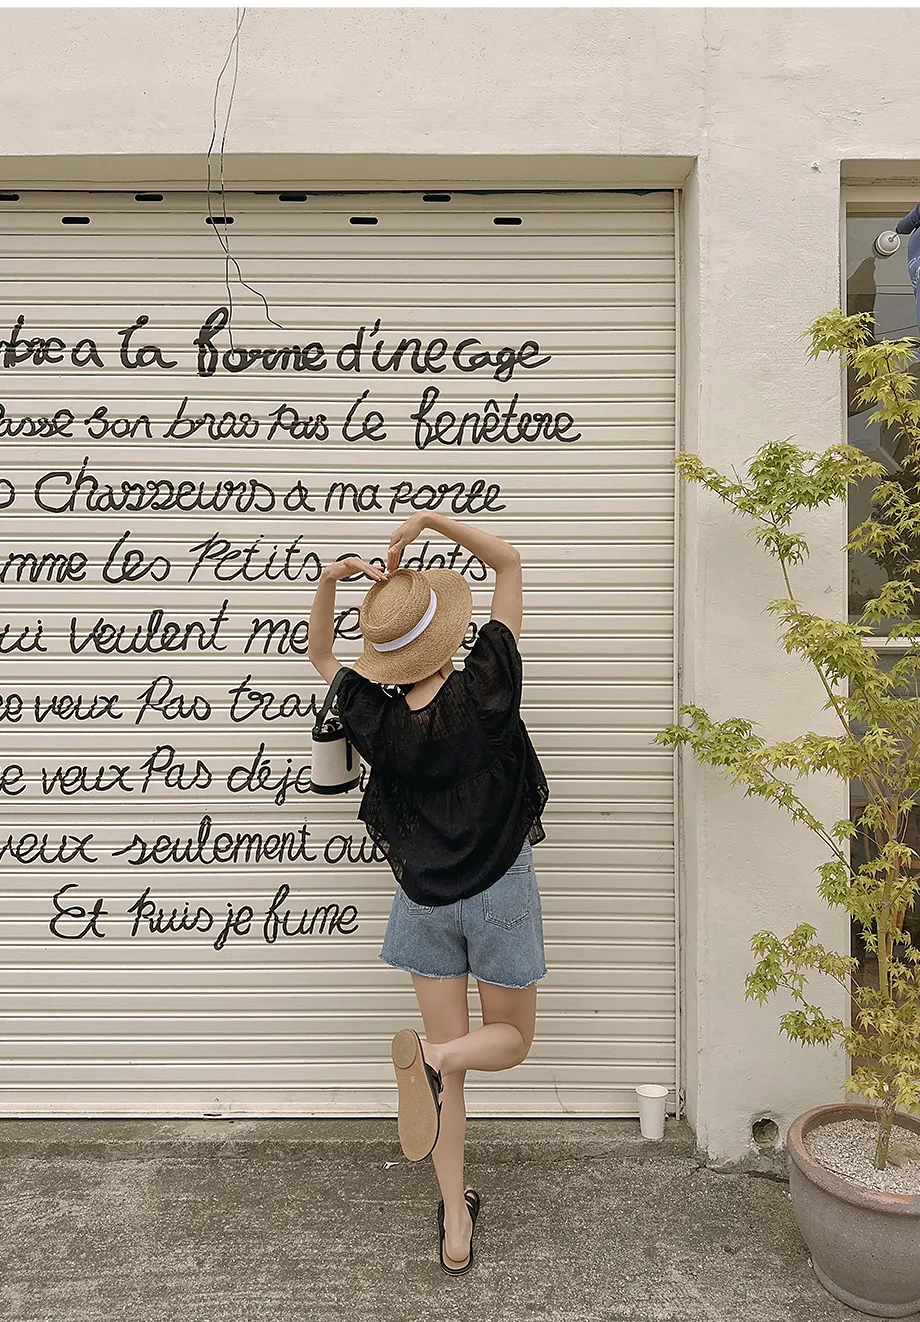 mbre a la forme d'une cage
passe son bras pas le fenêtere
Chasseurs à ma porte
mme les petits soldats
ui veulent me
e veux Pas trava
e veux Pas déje
veux seulement ou
Et Puis je fume